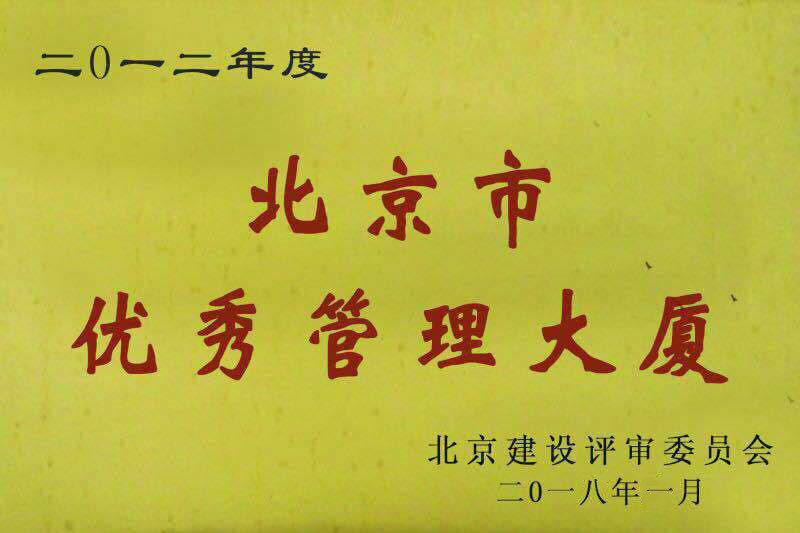 二0一二年度
北京市
优秀管理大厦
北京建设评审委员会
二0一八年一月